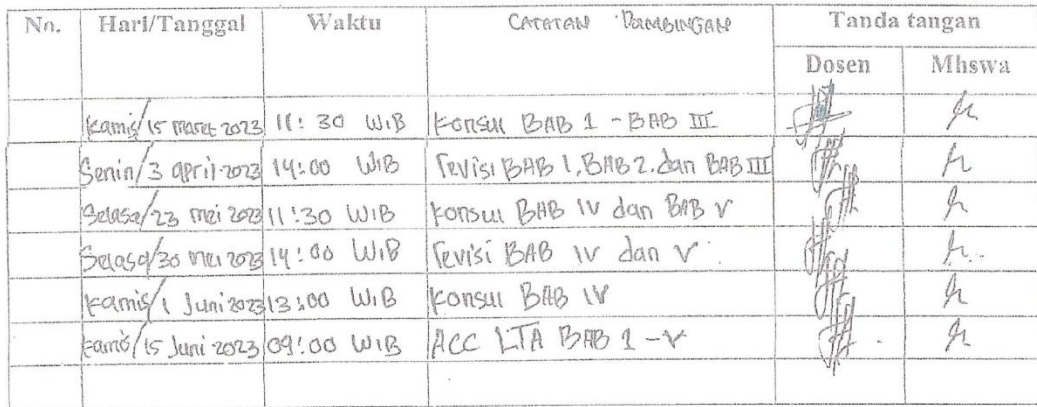 No. Hari/Tanggal Waktu CATATAN PEMBINGAN Tanda tangan
Dosen Mhswa
Kamis/15 maret 2023 11:30 WIB Konsul BAB 1 - BAB III
Senin/3 april 2023 14:00 WIB revisi BAB 1, BAB 2, dan BAB III
Selasa/23 mei 2023 11:30 WIB Konsul BAB IV dan BAB V
Selasa/30 mei 2023 14:00 WIB revisi BAB IV dan V
Kamis/1 Juni 2023 13:00 WIB Konsul BAB IV
Kamis/15 Juni 2023 09:00 WIB ACC LTA BAB 1 - V